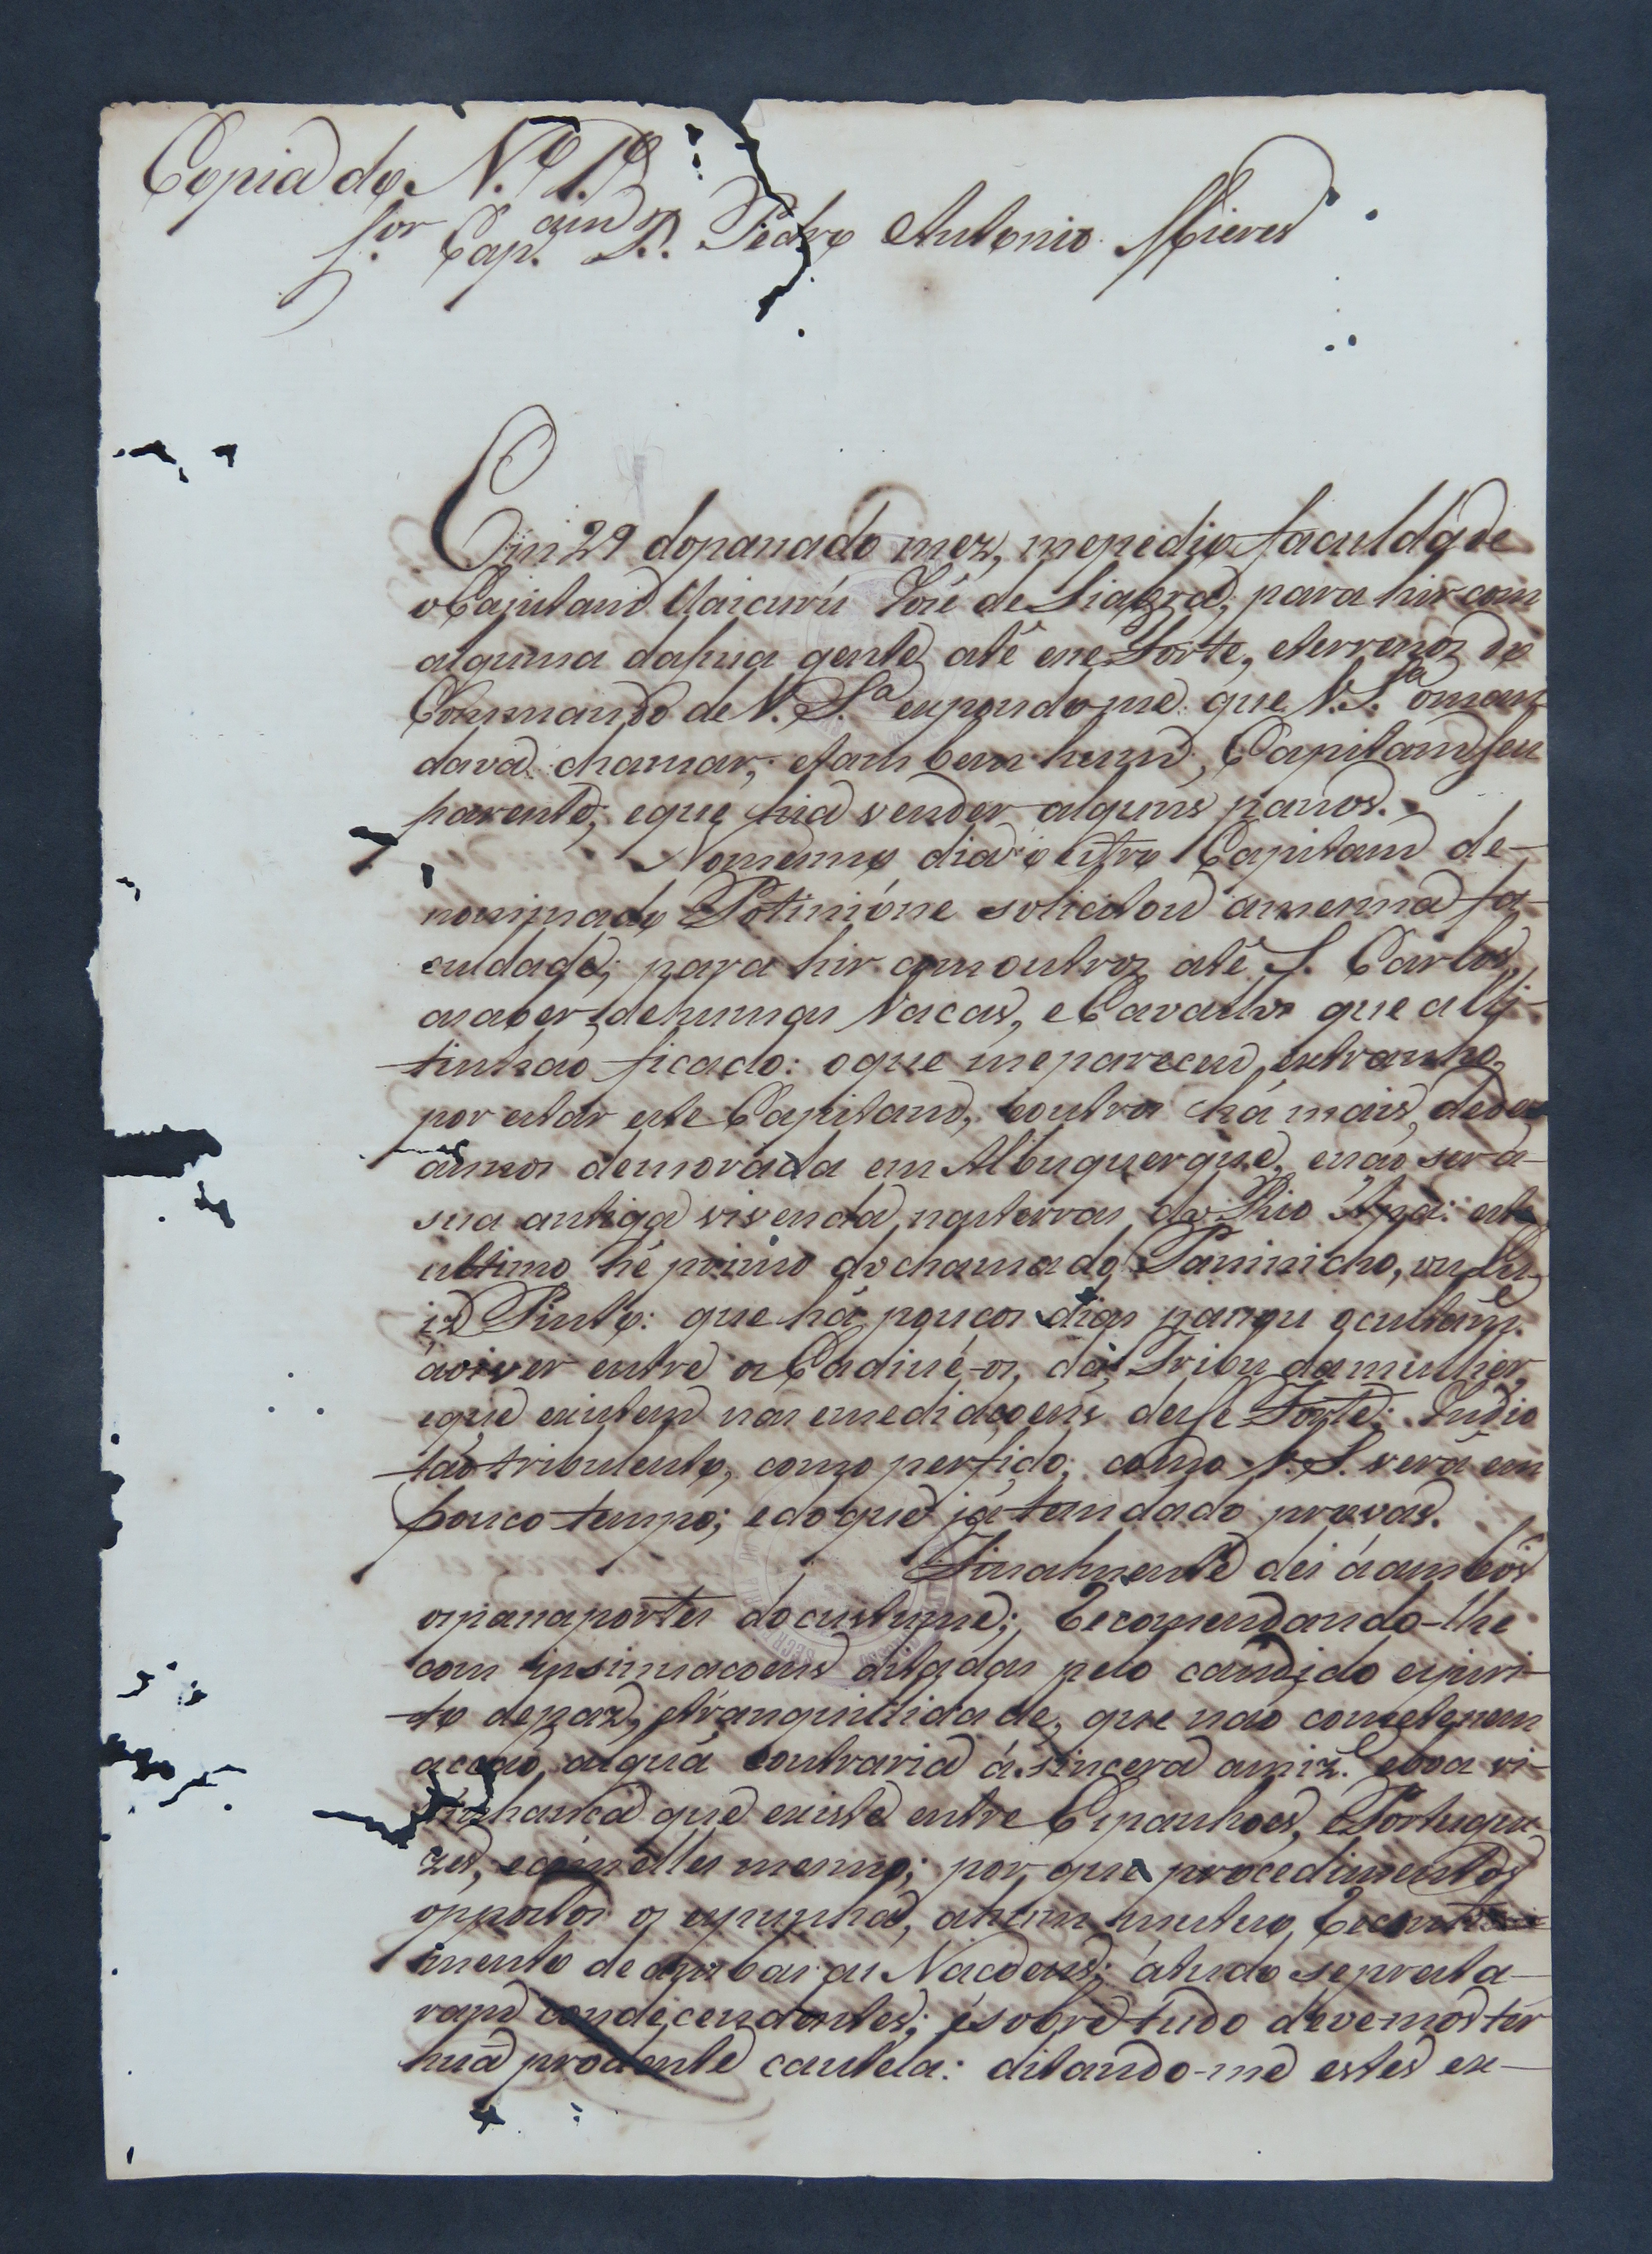 Copia do N.º 1.º
S.or Cap.am D. Pedro Antonio Mieres
Em 29 dopassado mez, mepedio faculdade
o Capitam Uaicurú José de Siabra, para hir com
alguma dasua gente até esse Forte, eterrenos do
Commando de V. S.a expondome que V. S.a oman
dava chamar, etambem hum Capitam seu
parente, eque hia vender alguns panos.
Nomesmo dia outro Capitam de-
nominado Potinióne solicitou amesma fa-
culdade, para hir comoutros até S. Carlos,
asaber dehumas Vacas, eCavallos que alli
tinhaõ ficado: oque mepareceu extranho,
por estar este Capitam, eoutros há mais, dedez
annos demorada em Albuquerque, enaõ ser a
sua antiga vivenda nasterras do Rio Apa: este
ultimo hé primo dochamado Paninicho, ou Lu-
iz Pinto: que há poucos dias passou ocultam.e
áviver entre os Cadiué-os, da Tribu damulher,
eque existem nas emediaçoens desse Forte: Indio
taõ tribulento, como perfido, como V. S. verá em
pouco tempo; edoque já tem dado provas.
Finalmente dei áambos
ospassaportes docustume; Recomendando-lhe
com insinuacoens ditadas pelo candido espiri-
to depaz, etranquilidade, que naõ cometessem
accaõ alguã contraria á sincera amiz.e eboa vi-
sinhanca que existe entre Espanhoes, ePortugue-
zes, ecom elles mesmo; por que procedimentos
oppostos os expunha, ahum mutuo
mento de ambas as Nacoens: átudo sepresta-
ram condecendentes; ésobre tudo devemos ter
huã prodente cautela: ditando-me estes ex-